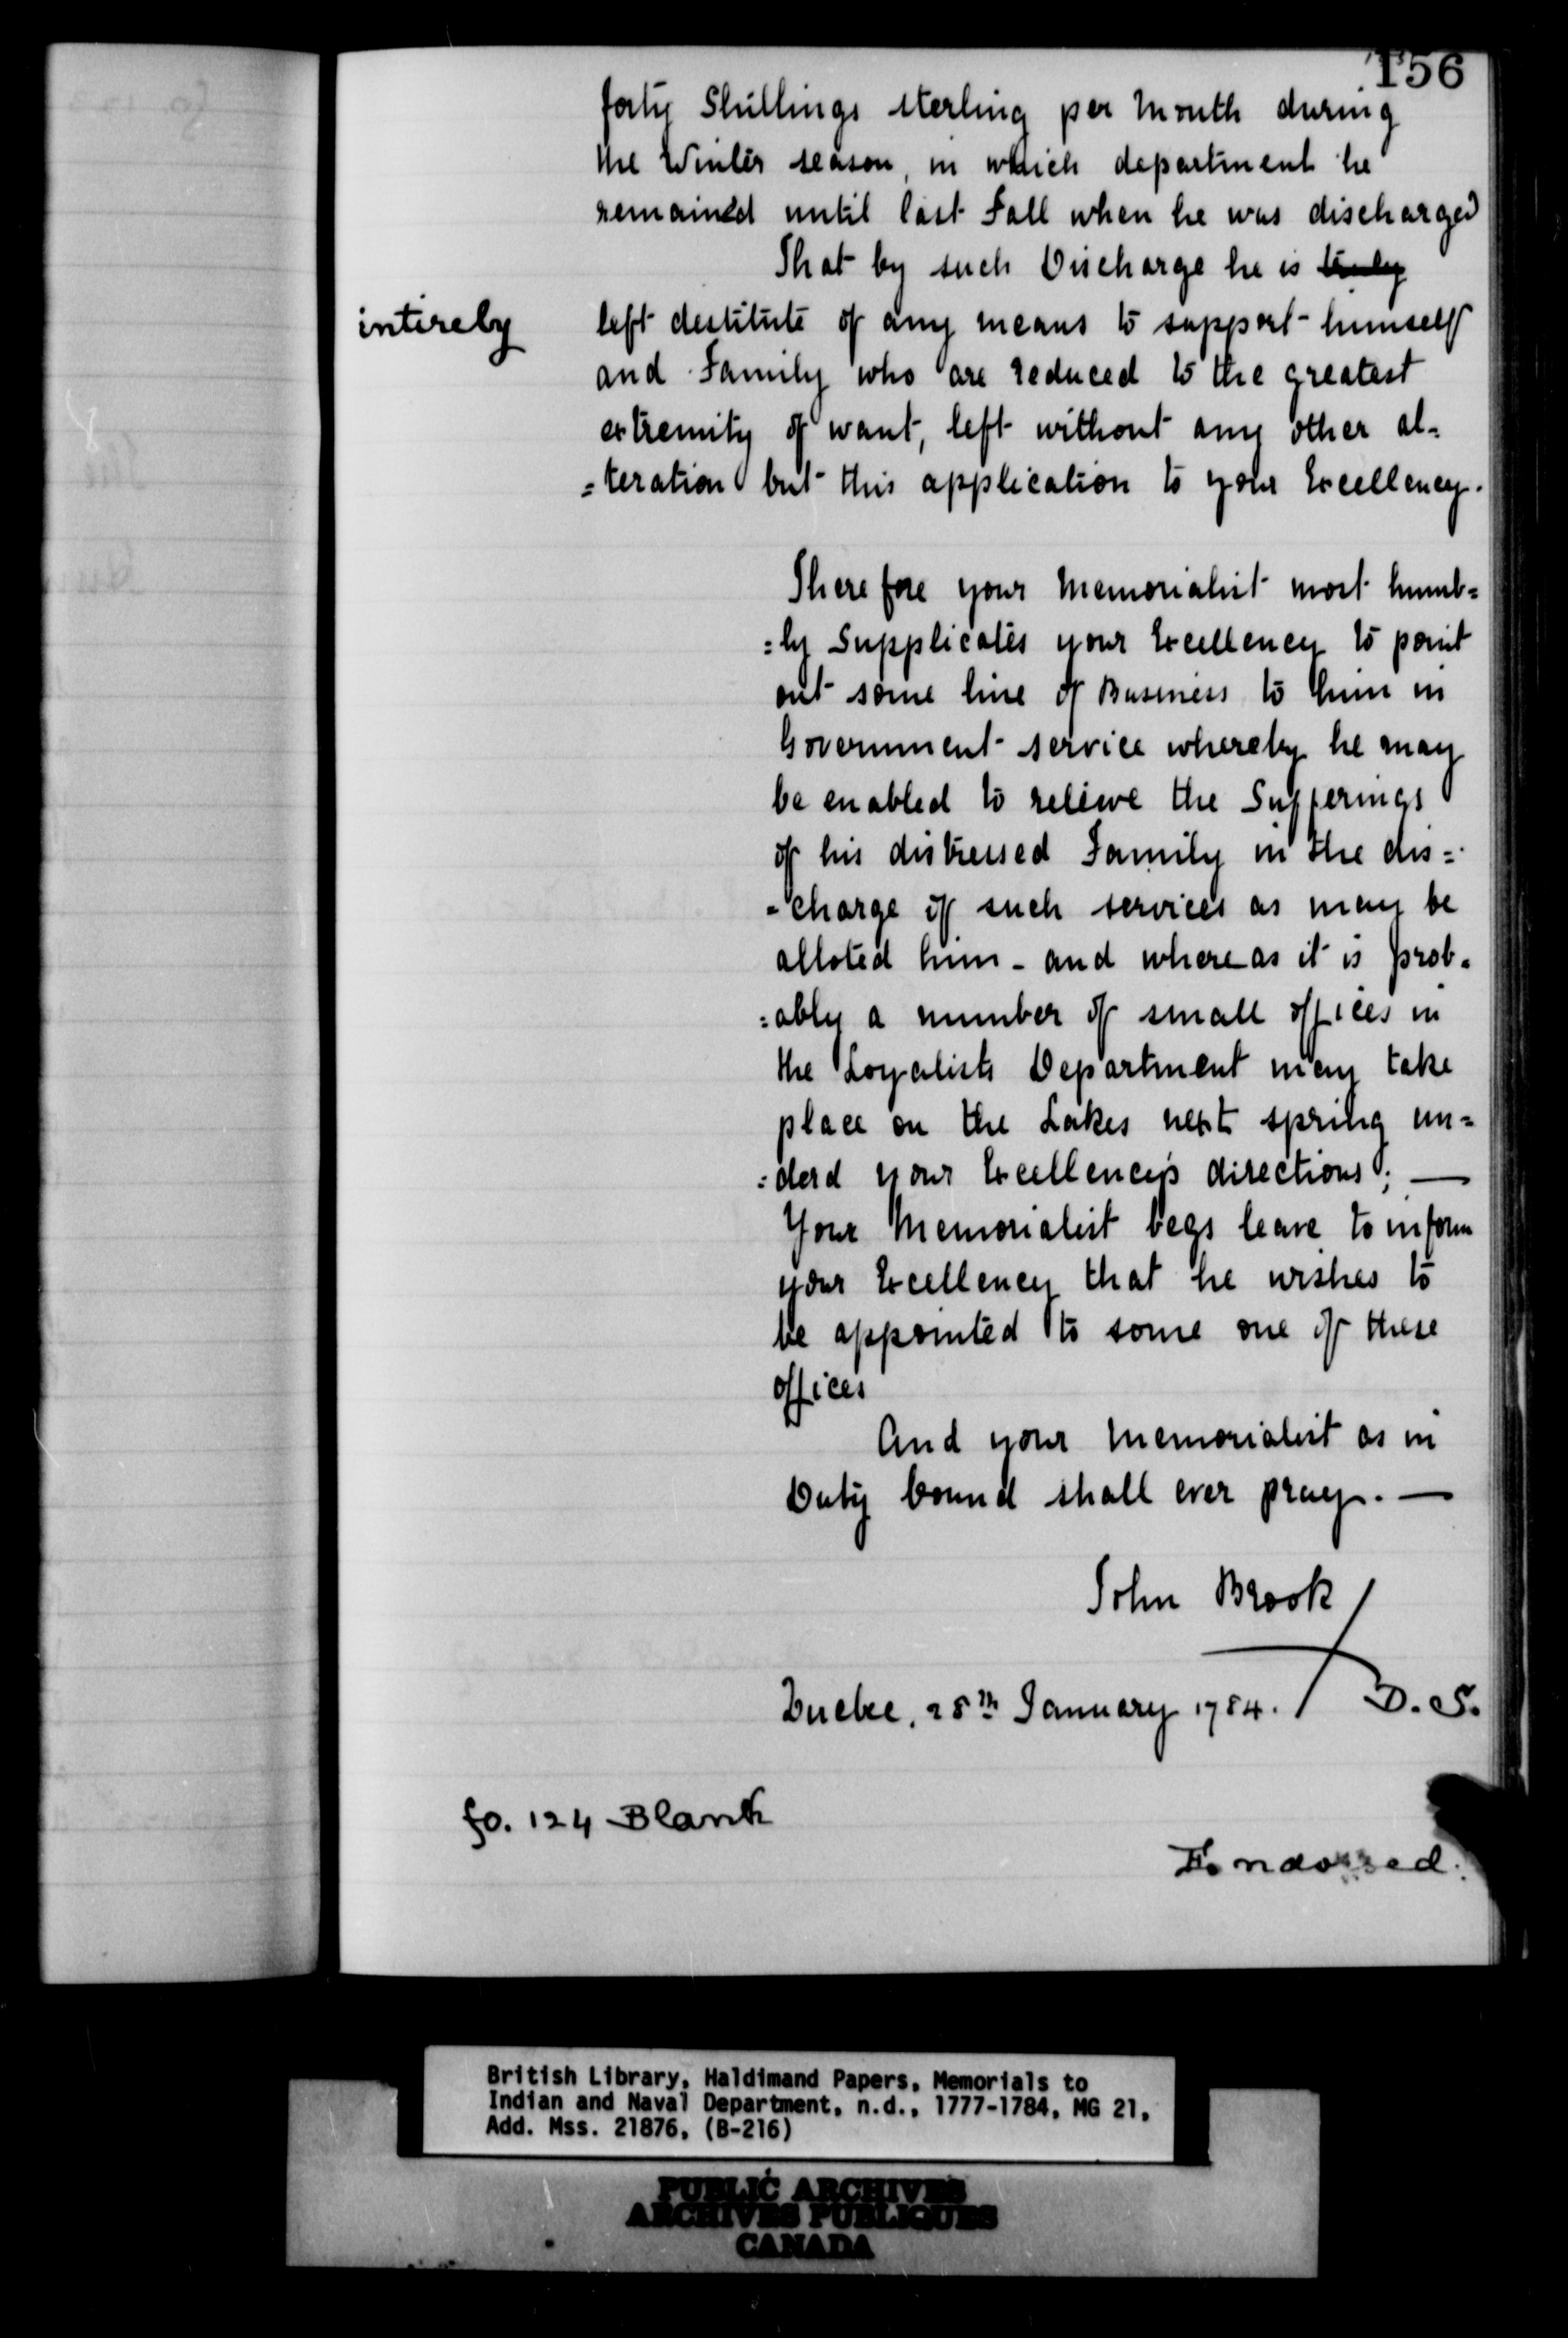 156
forty Shillings sterling per Month during
the Winter season, in which department he
remained until last Fall when he was discharged
That by such Discharge he is truly
intirely left destitute of any means to support himself
and Family who are reduced to the greatest
extremity of want, left without any other al=
=teration but this application to your Excellency.
Therefore your Memorialist most humb=
=ly Supplicates your Excellency to point
out some line of Business to him in
Government service whereby he may
be enabled to relieve the Sufferings
of his distressed Family in the dis=
=charge of such services as may be
alloted him - and whereas it is prob=
=ably a number of small offices in
the Loyalists Department may take
place on the Lakes next spring un=
=derd your Excellency's directions; —
Your Memorialist begs leave to inform
your Excellency that he wishes to
be appointed to some one of these
offices
And your Memorialist as in
Duty bound shall ever pray. —
John Brook
Quebec, 28th January 1784. / D. S.
fo. 124 Blank
Endorsed.
British Library, Haldimand Papers, Memorials to
Indian and Naval Department, n.d., 1777-1784, MG 21,
Add. Mss. 21876, (B-216)
PUBLIC ARCHIVES
ARCHIVES PUBLIQUES
CANADA